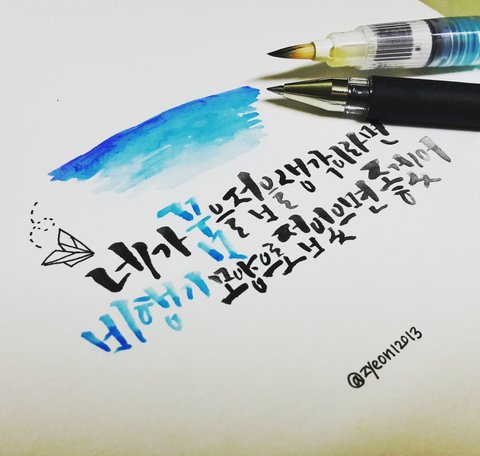 네가 꿈을 접을 생각이라면
비행기 모양으로 접었으면 좋겠어
@zyeon12013